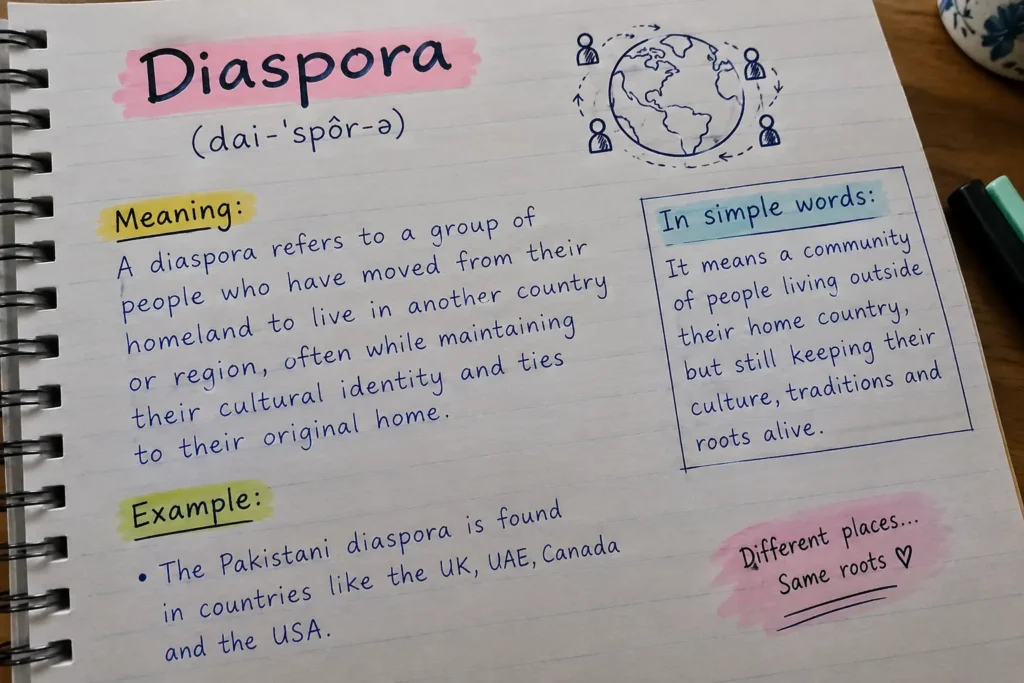 Diaspora
(dai-'spôr-ə)
Meaning:
A diaspora refers to a group of
people who have moved from their
homeland to live in another country
or region, often while maintaining
their cultural identity and ties
to their original home.
In simple words:
It means a community
of people living outside
their home country,
but still keeping their
culture, traditions and
roots alive.
Example:
• The Pakistani diaspora is found
in countries like the UK, UAE, Canada
and the USA.
Different places...
Same roots ♡